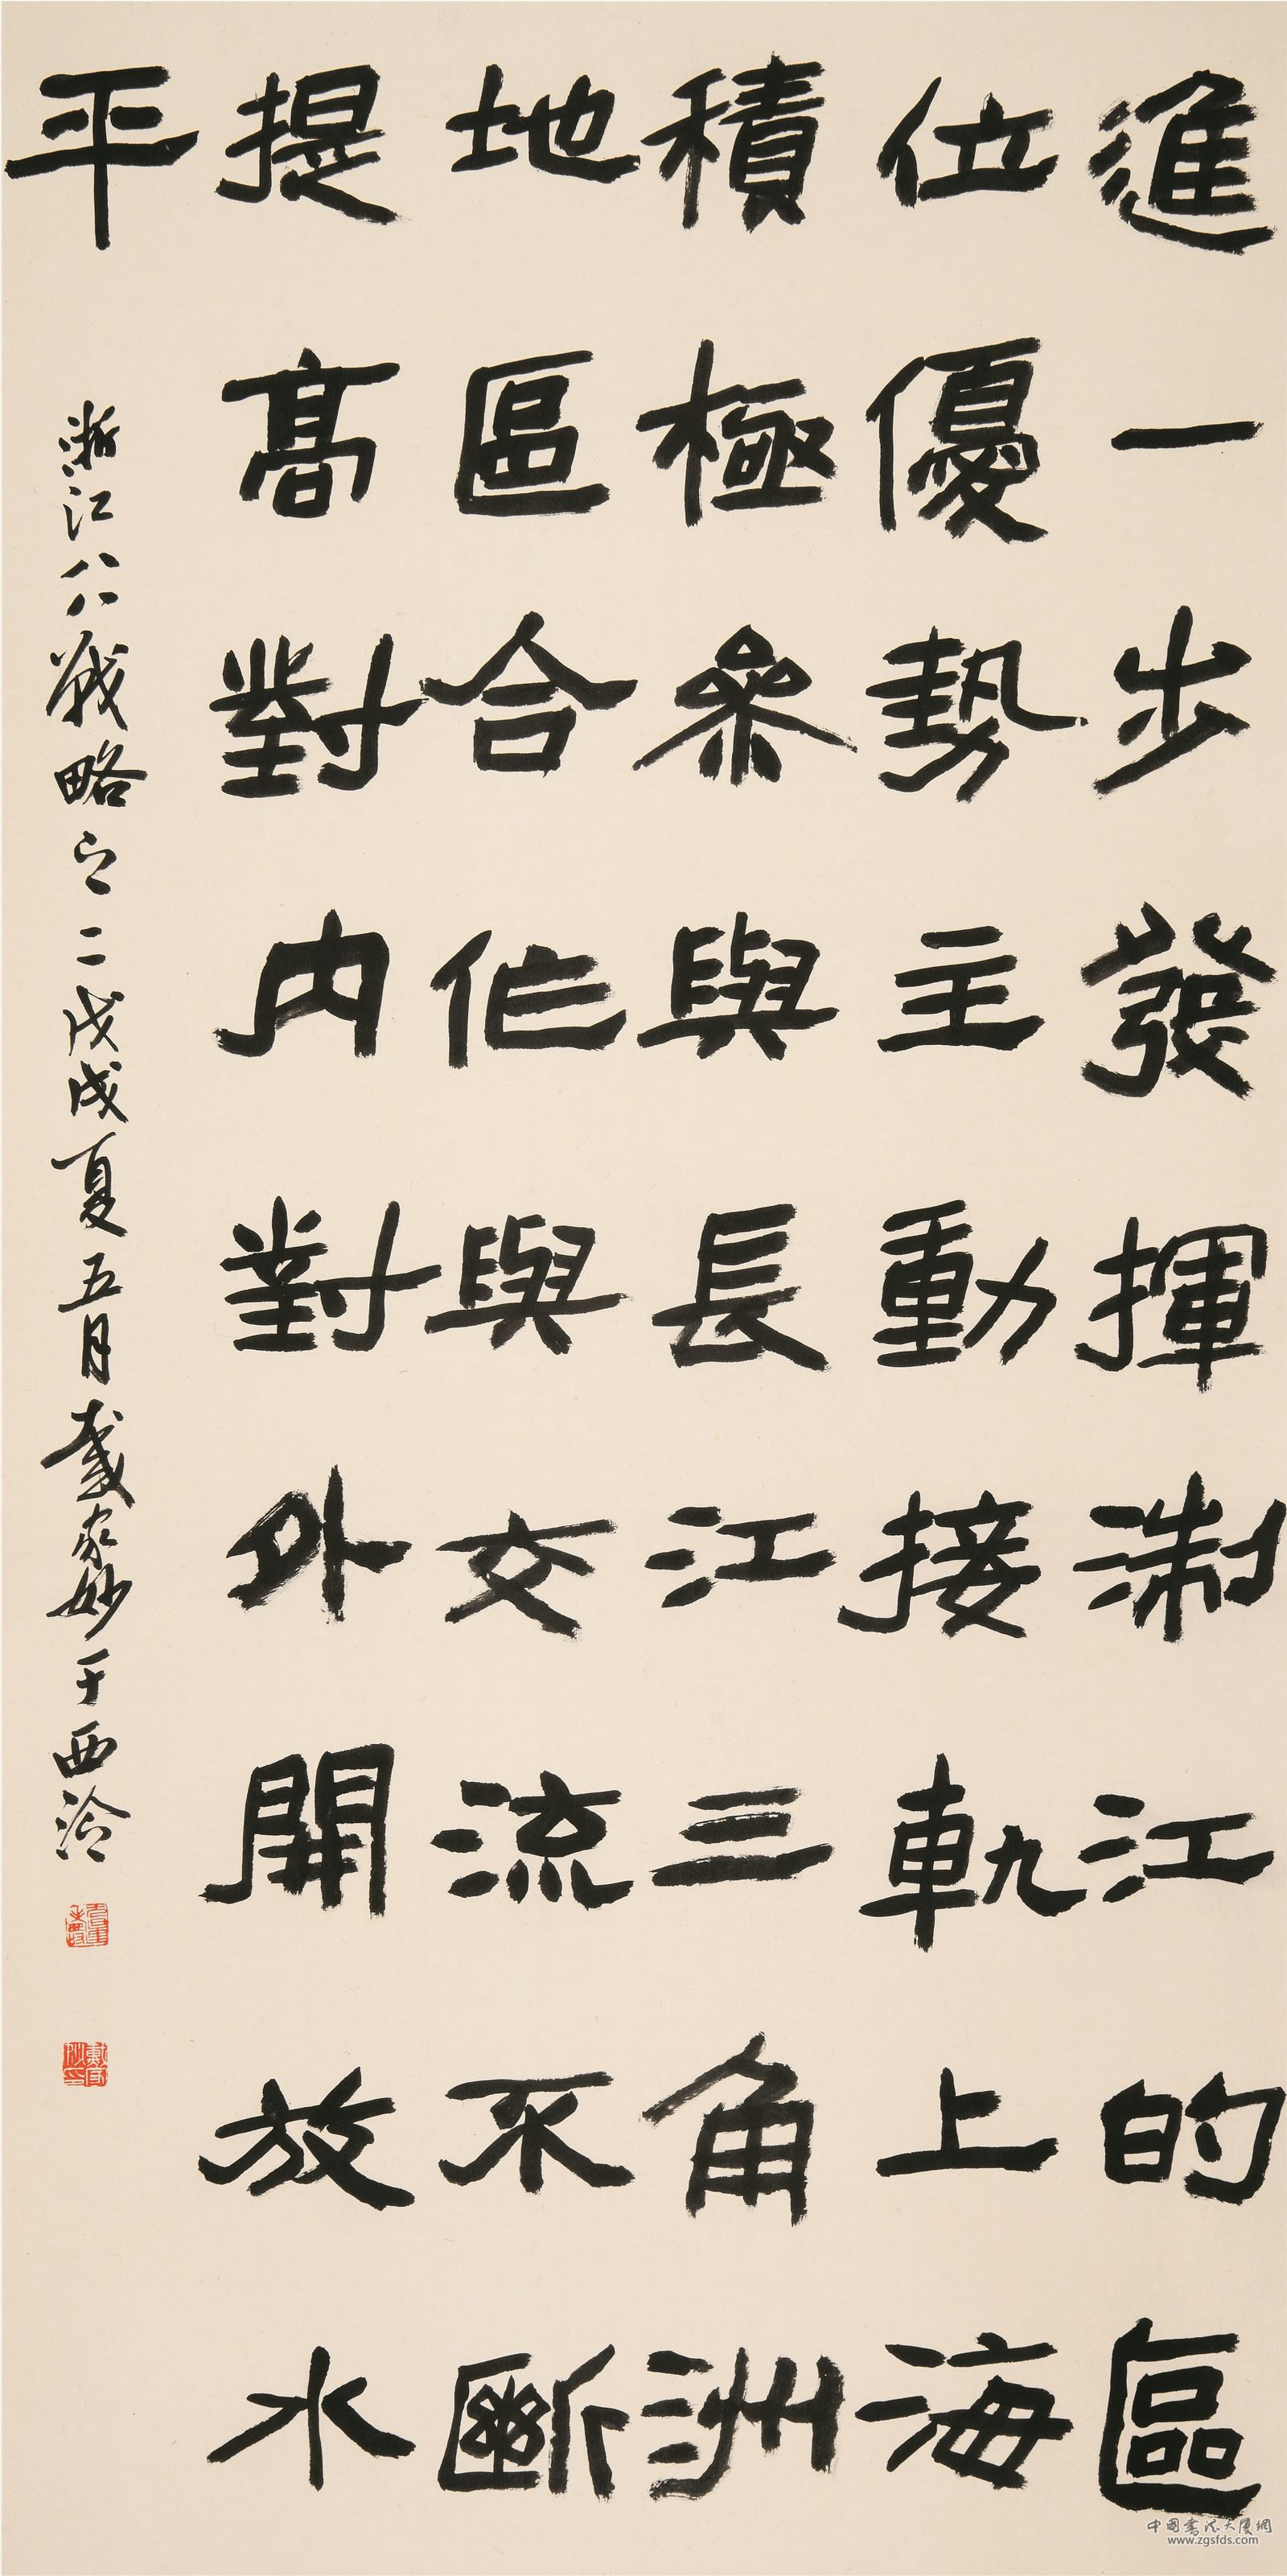 進一步發揮淛江的區
位優勢主動接軌上海
積極參與長江三角洲
地區合作與交流不斷
提高對内對外開放水
平
浙江八八戰略之二戊戌夏五月戴家妙于西泠
中國書法大廈網
www.zgsfds.com